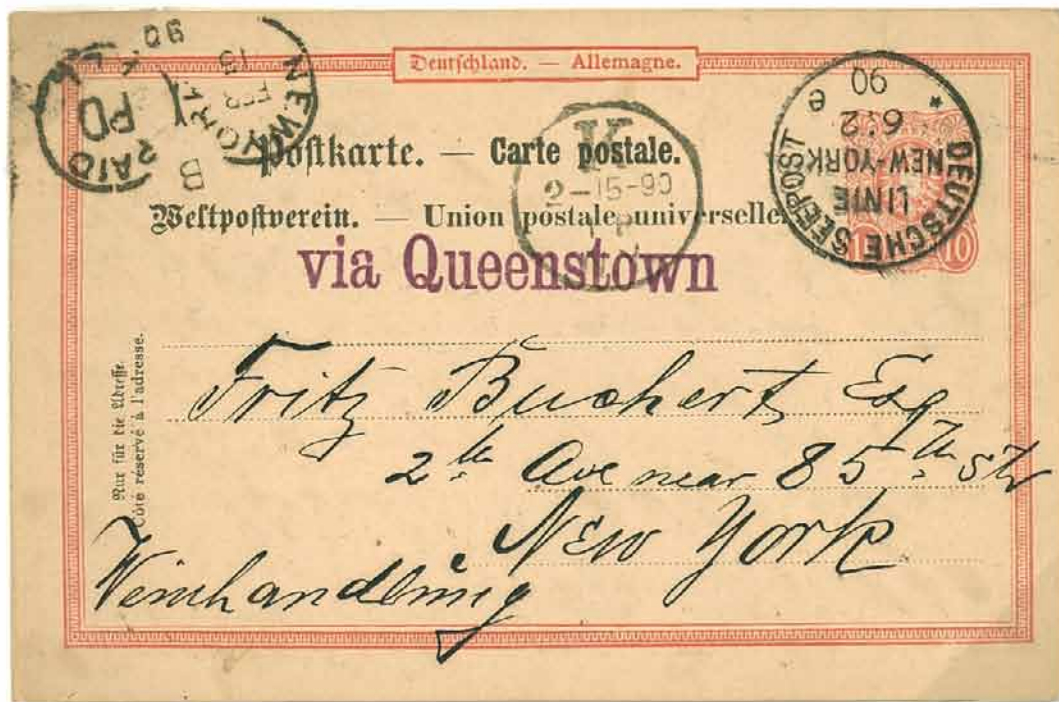 Deutschland. — Allemagne.
NEW YORK
FEB 15
90
PAID
B
K
2-15-90
DEUTSCHE SEEPOST
LINIE
NEW-YORK
6.2
90
e
10
Postkarte. — Carte postale.
Weltpostverein. — Union postale universelle.
via Queenstown
Nur für die Adresse.
Côté réservé à l'adresse.
Fritz Buchert Esq
2th Ave near 85th Str
New York
Weinhandlung